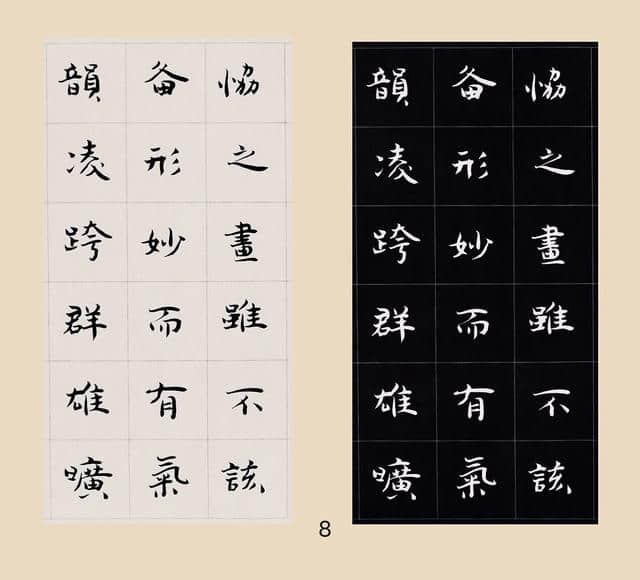 恊之畫雖不該
备形妙而有氣
韻凌跨群雄曠
恊之畫雖不該
备形妙而有氣
韻凌跨群雄曠
8